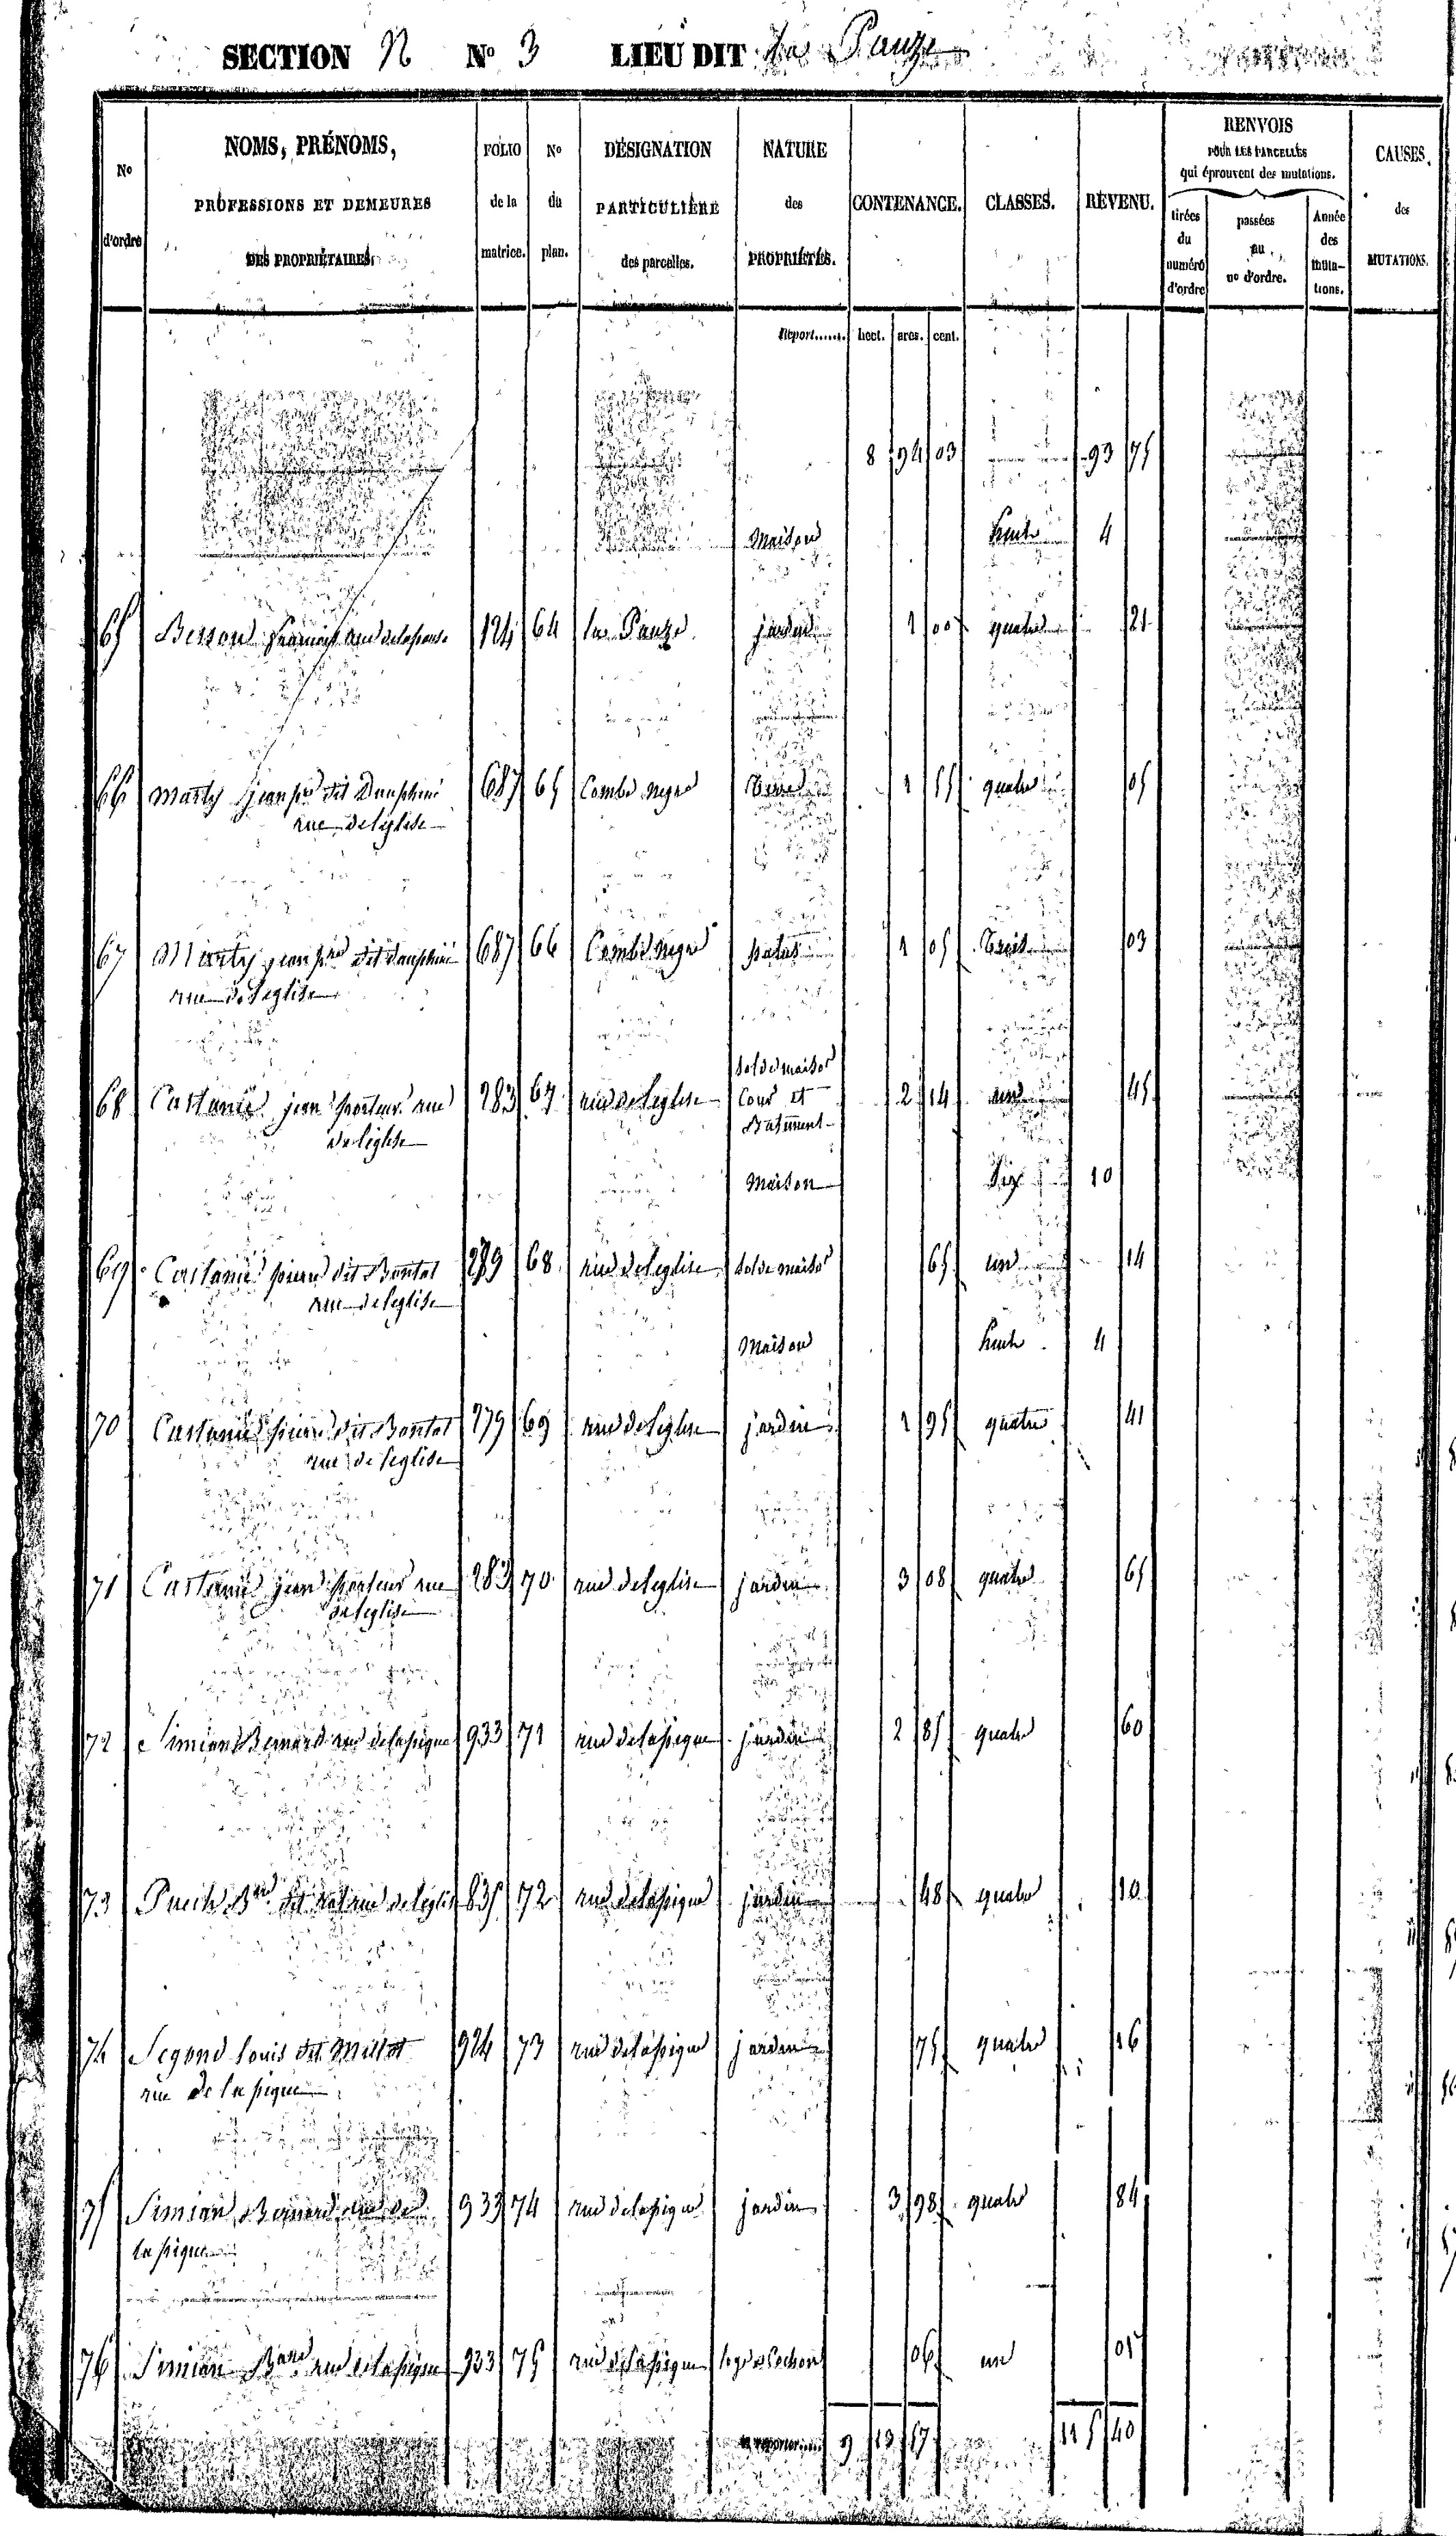 SECTION N No 3 LIEU DIT La Pauze
No d'ordre
NOMS, PRÉNOMS, PROFESSIONS ET DEMEURES DES PROPRIÉTAIRES
FOLIO de la matrice.
No du plan.
DÉSIGNATION PARTICULIÈRE des parcelles.
NATURE des PROPRIÉTÉS.
CONTENANCE.
CLASSES.
REVENU.
RENVOIS POUR LES PARCELLES qui éprouvent des mutations.
tirées du numéro d'ordre
passées au no d'ordre.
Année des mutations.
CAUSES, des MUTATIONS.
Report...... hect. ares. cent.
8 94 03 93 75
Maison huit 4
65 Besson François rue de la pauze 124 64 la Pauze jardin 1 00 quatre 21
66 Marty jean pre dit Dauphiné 687 65 Combe negre Terre 1 55 quatre 05
rue de l'église
67 Marty jean pre dit dauphiné 687 66 Combe negre patus 1 05 Trois 03
rue de l'eglise
68 Castanié jean porteur rue 283 67 rue de l'eglise sol de maison
Cour et
Batiment 2 14 un 45
de l'église
Maison Six 10
69 Castanié pierre dit Bontat 279 68 rue de l'eglise sol de maison 65 un 14
rue de l'eglise
Maison huit 4
70 Castanié pierre dit Bontat 279 69 rue de l'eglise jardin 1 95 quatre 41
rue de l'eglise
71 Castanié jean porteur rue 283 70 rue de l'eglise jardin 3 08 quatre 65
de l'eglise
72 Simian Bernard rue de la pique 933 71 rue de la pique jardin 2 85 quatre 60
73 Puech Bard dit rue de l'eglise 835 72 rue de la pique jardin 48 quatre 10
74 Segond louis dit Millot 924 73 rue de la pique jardin 75 quatre 16
rue de la pique
75 Simian Bernard rue de 933 74 rue de la pique jardin 3 98 quatre 84
la pique
76 Simian Bard rue de la pique 933 75 rue de la pique loge a Cochon 06 un 01
9 13 57 115 40